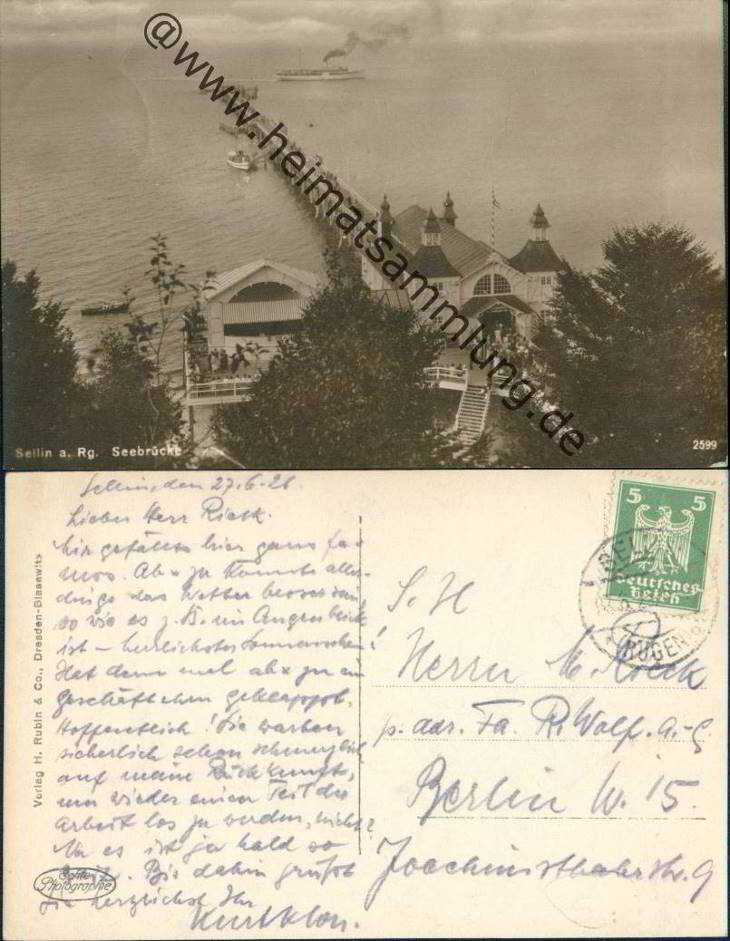 @www.heimatsammlung.de
Sellin a. Rg. Seebrücke
2599
Sellin, den 27.6.26
Lieber Herr Rieck.
Mir gefällts hier ganz fa-
mos. Ab u zu könnte aller-
dings das Wetter besser sein,
so wie es z. B. im Augenblick
ist – herrlichster Sonnenschein!
Hat denn mal ab u zu ein
Geschäftchen geklappt.
Hoffentlich! Sie warten
sicherlich schon schmerzlich
auf meine Rückkunft,
um wieder einen Teil der
Arbeit los zu werden, nicht?
Na es ist ja bald so
Bis dahin grüßt
Sie herzlichst Ihr
Kurt
Verlag H. Rubin & Co., Dresden-Blasewitz
Echte
Photographie
5 5
Deutsches
Reich
SELLIN
(RÜGEN)
S. H
Herrn M. Rieck
p. adr. Fa. R. Wolf A.-G.
Berlin W. 15.
Joachimsthalerstr. 9